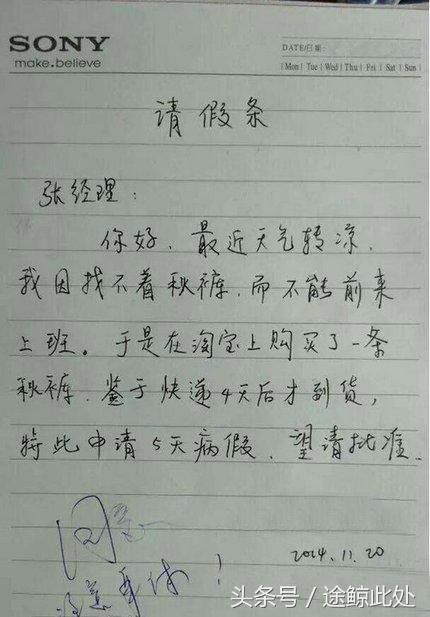 SONY
make.believe
DATE/日期:
| Mon | Tue | Wed | Thu | Fri | Sat | Sun |
请假条
张经理:
你好、最近天气转凉、
我因找不着秋裤、而不能前来
上班。于是在淘宝上购买了一条
秋裤、鉴于快递4天后才到货,
特此申请5天病假、望请批准.
同意
注意身体!
2014.11.20
头条号 / 途鲸此处